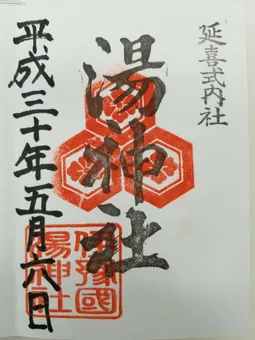 延喜式内社
湯神社
平成三十年五月六日
伊豫國
湯神社